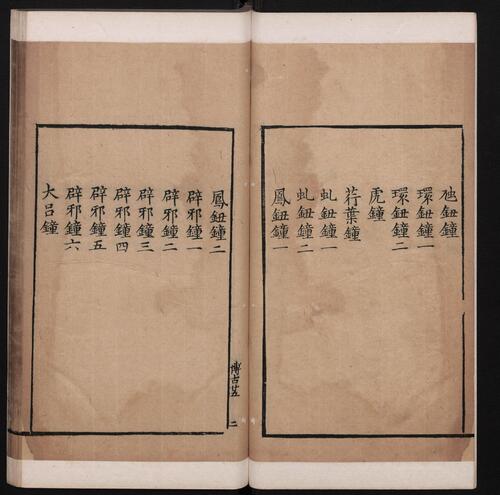 虵鈕鐘
環鈕鐘一
環鈕鐘二
虎鐘
荇葉鐘
虬鈕鐘一
虬鈕鐘二
鳳鈕鐘一
鳳鈕鐘二
辟邪鐘一
辟邪鐘二
辟邪鐘三
辟邪鐘四
辟邪鐘五
辟邪鐘六
大呂鐘
博古
二